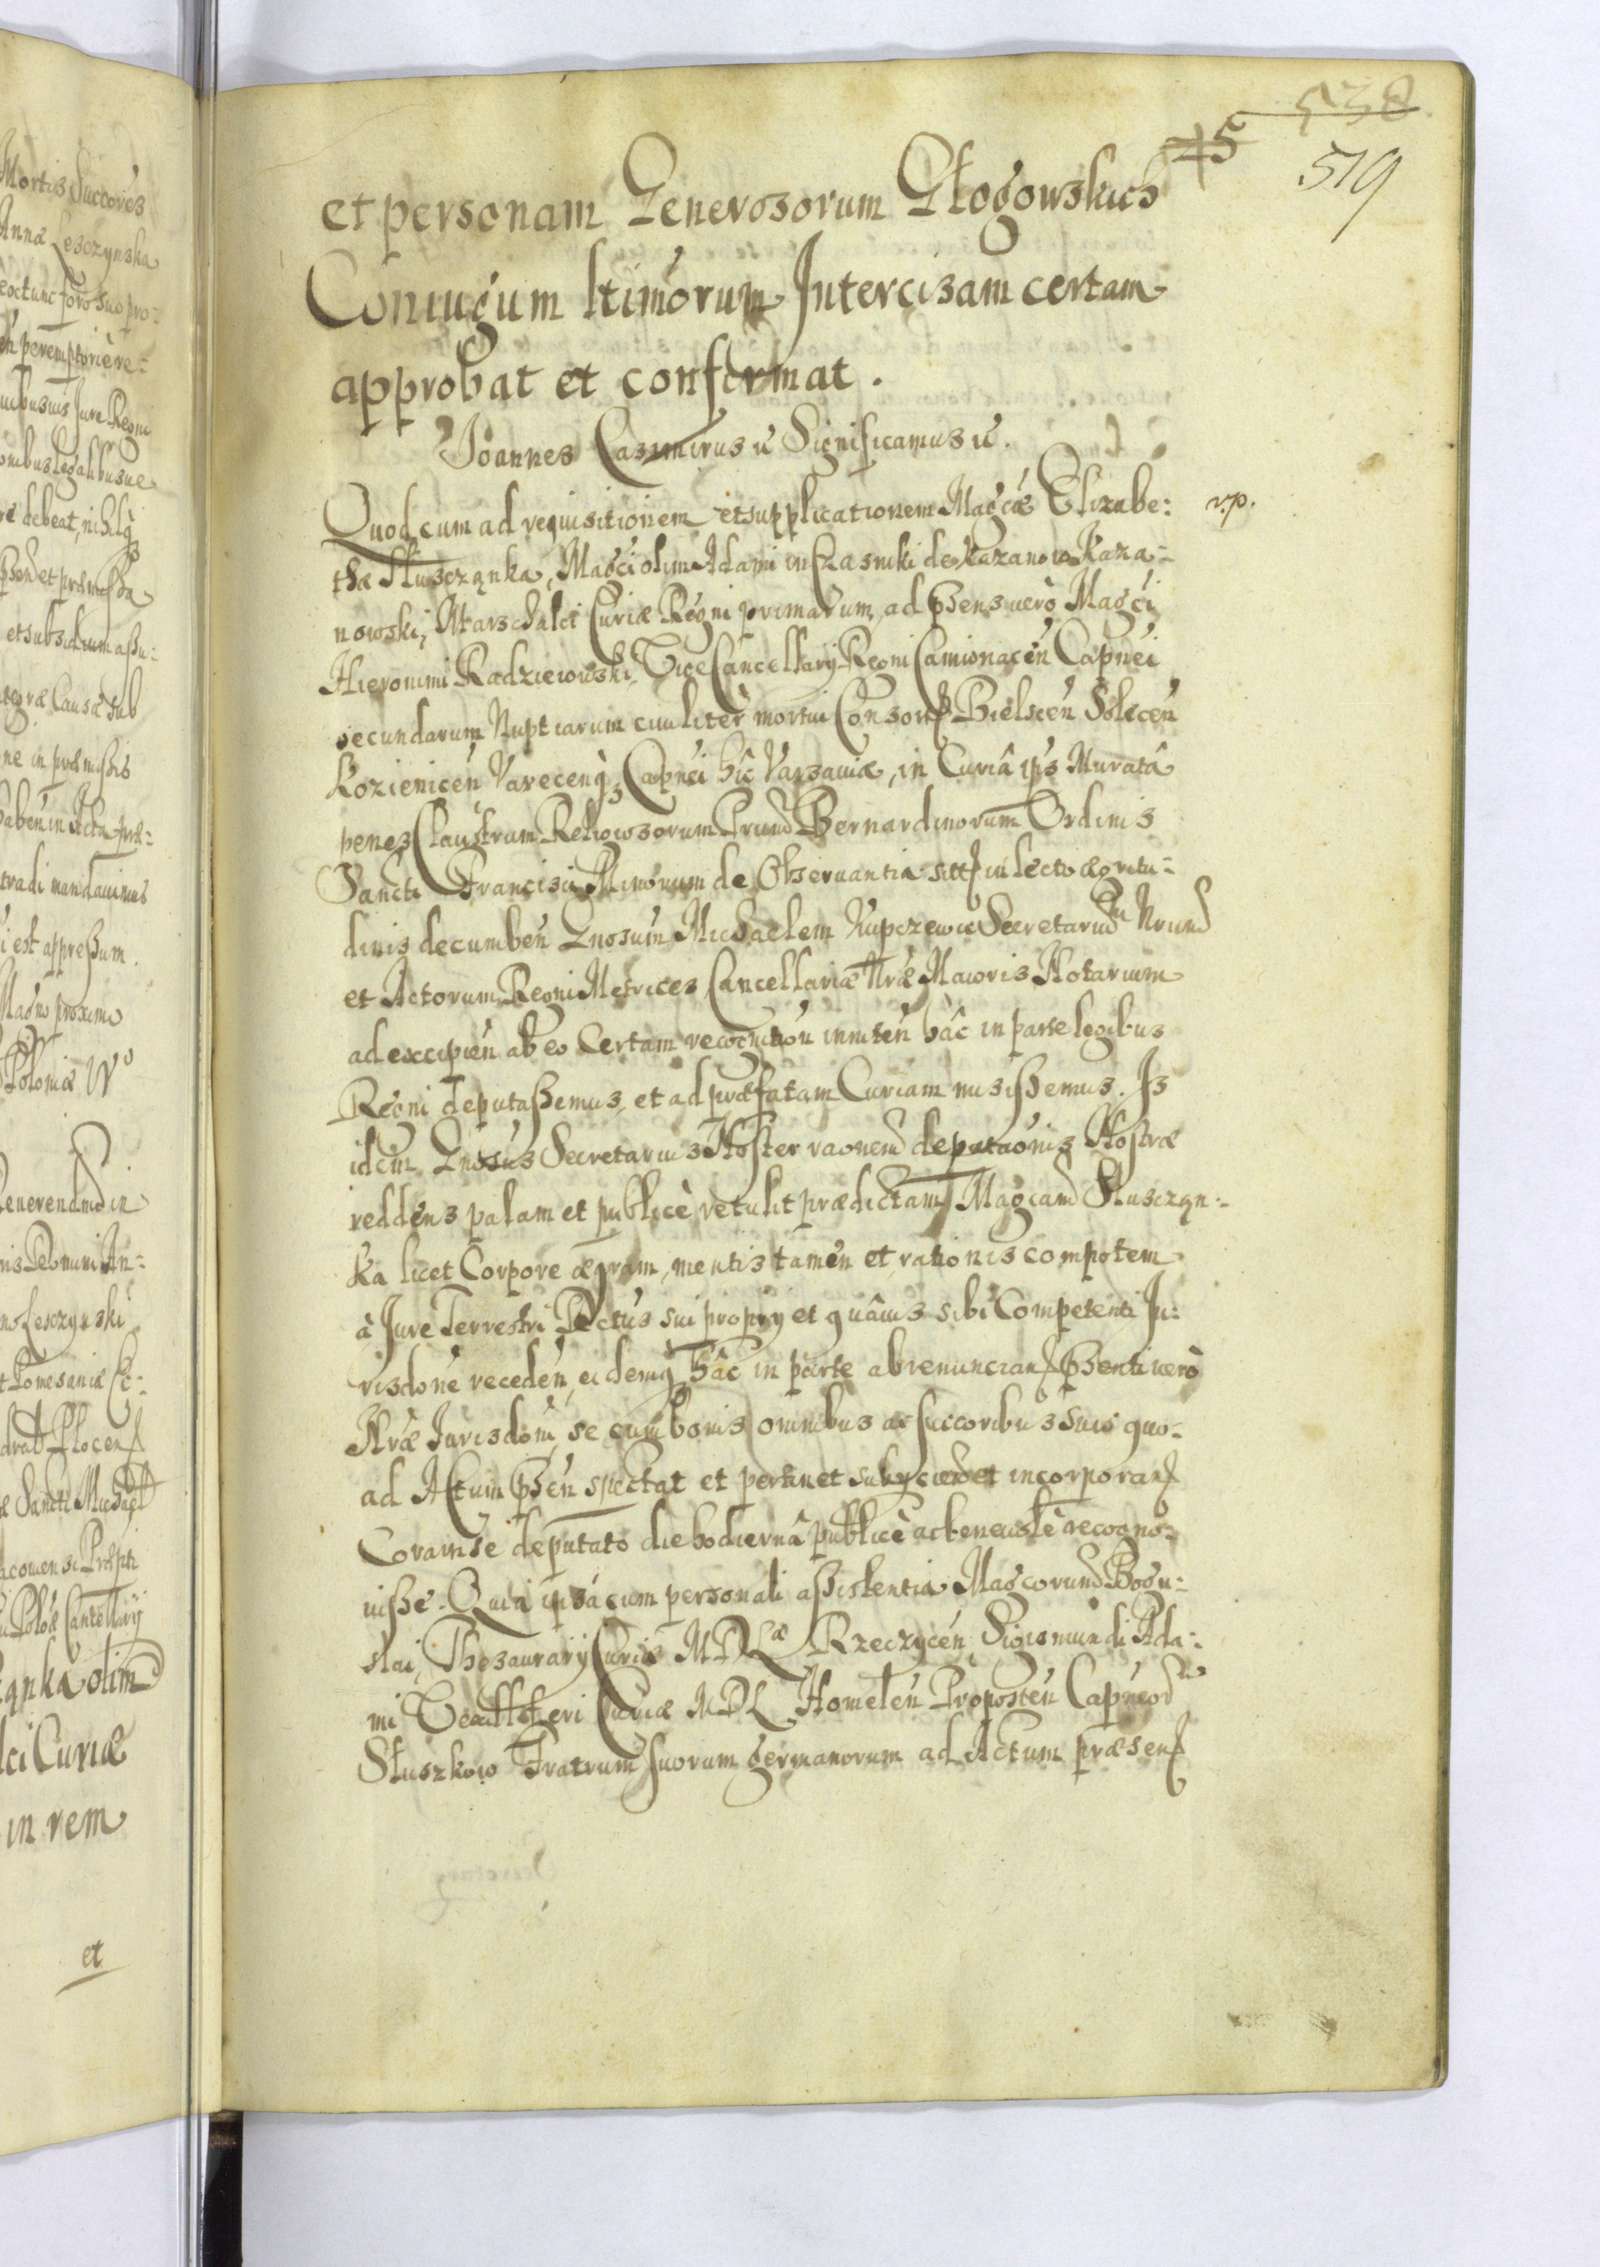 538
45
519
et personam Generosorum Głogowskich
Coniugum ltimorum Intercisam certam
approbat et confirmat.
Joannes Casimirus etc Significamus etc.
Quod cum ad requisitionem et supplicationem Magcæ Elizabe: rp.
thæ Słuscząnka, Magci olim Adami in Czasniki de Kazanow Kaza-
nowski, Marschalci Curiæ Regni primarum, ad pñens uerò Magci
Hieronimi Radzieiowski, Vice Cancellarij Regni Camionacen̄ Capnei
secundarum Nuptiarum ciuiliter mortui Consorᵵ Bielscen̄ Solecen̄
Kozienicen̄ Varecenq̢ Capnei hîc Varsauiæ, in Curiâ ips Muratâ
penes Claustrum Religiosorum Prum̄ Bernardinorum Ordinis
Sancti Francisci Minorum de Obseruantia sitᵵ in lecto ægritu-
dinis decumben̄ Gnosum̄ Michaelem Kupczewic Secretarium Nrum̄
et Actorum Regni Metrices Cancellariæ Nræ Maioris Notarium
ad excipien̄ ab eo Certam recognition̄ inniten̄ hâc in parte legibus
Regni deputassemus, et ad præfatam Curiam misissemus. Is
idem Gnosus Secretarius Noster raonem̄ deputaōnis Nostræ
reddens palam et publicè retulit prædictam Magcam̄ Słuscząn-
ka licet Corpore ægram, mentis tamen et rationis compotem
à Jure Terrestri Dctus sui proprij et quâuis sibi Competenti Ju:
risdōne receden̄, eidemq̢ hâc in parte abrenuncianᵵ pñenti uerò
Nræ Jurisdōni, se cum bonis omnibus ac succoribus suis quo-
ad Actum pñen̄ spectat et pertinet subijcien̄ et incorporanᵵ
Coram se deputato die hodiernâ publicè ac beneuolè recogno-
uisse. Quia ipsa cum personali assistentia Magcorum̄ Bogu-
slai, Thesaurarij Curiæ MDLæ Rzeczycen̄, Sigismundi Ada-
mi Vexilliferi Curiæ MDL Homelen̄ Proposten̄ Capneor̄
Słuszkow Fratrum suorum germanorum ad Actum præsenᵵ